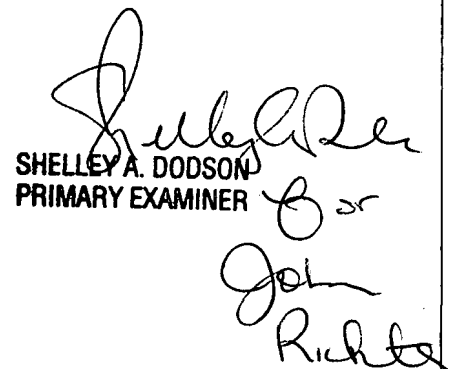 SHELLEY A. DODSON
PRIMARY EXAMINER
for
John
Richter